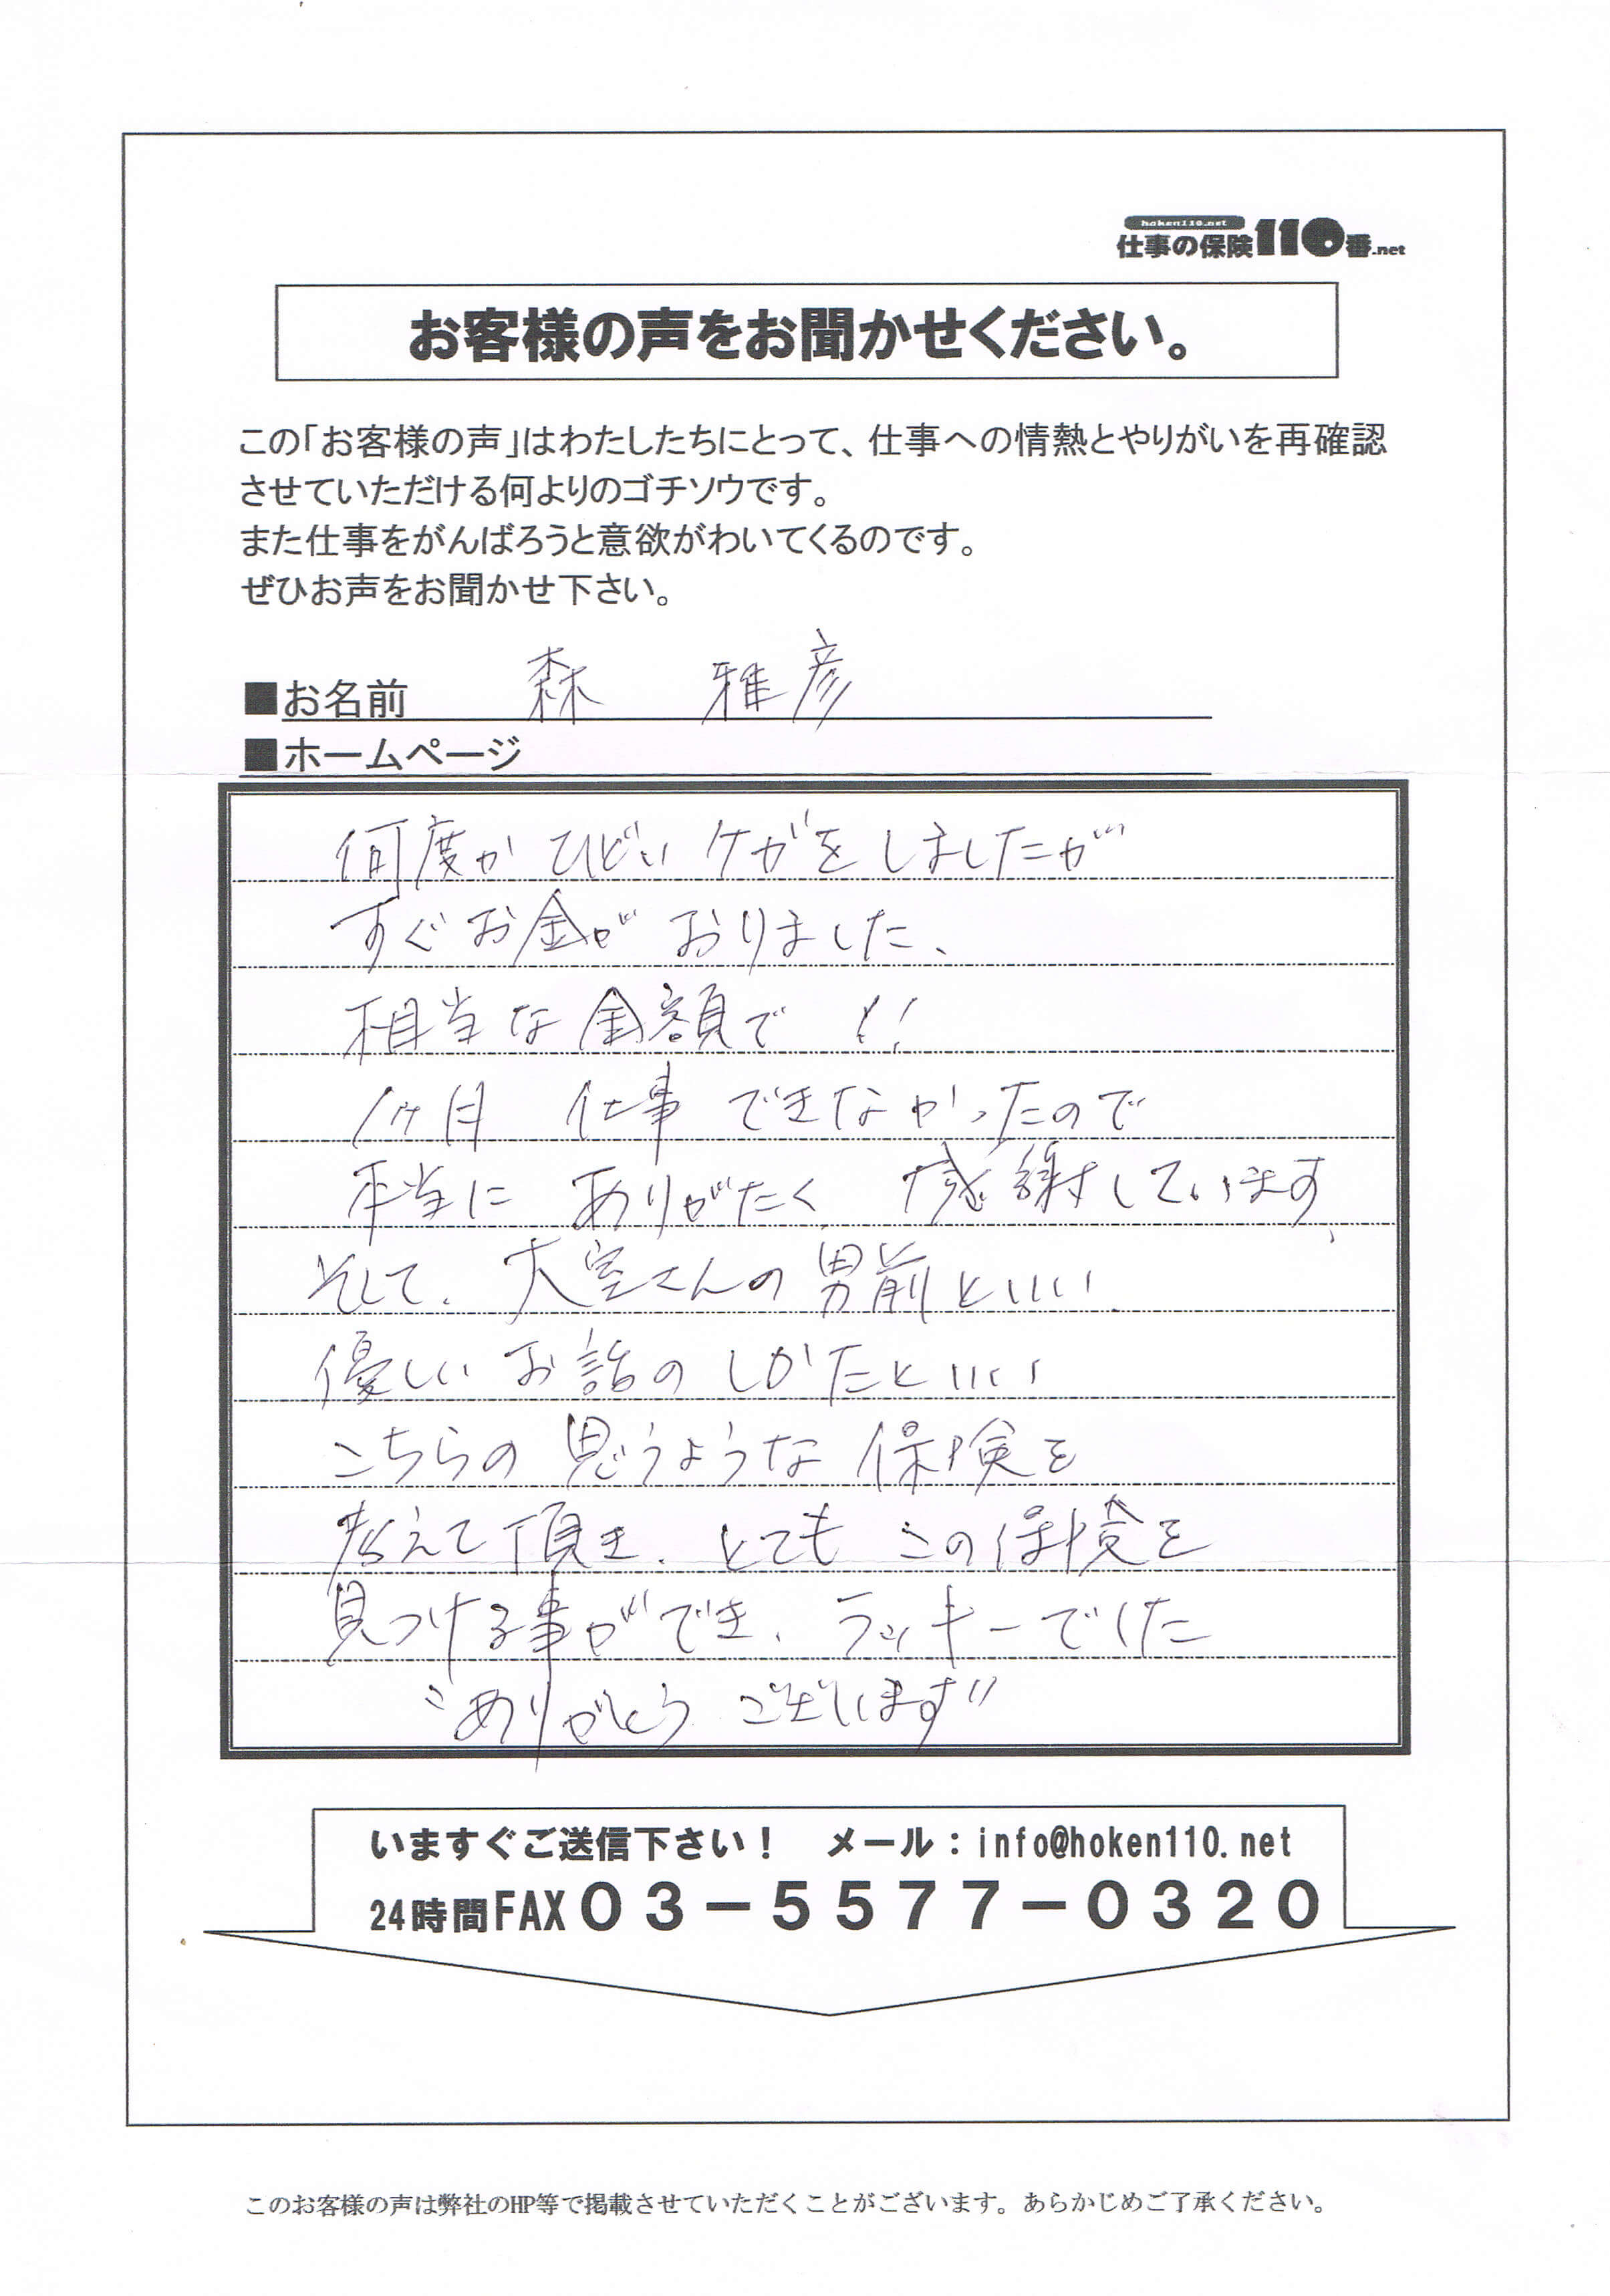 hoken110.net
仕事の保険110番.net
お客様の声をお聞かせください。
この「お客様の声」はわたしたちにとって、仕事への情熱とやりがいを再確認
させていただける何よりのゴチソウです。
また仕事をがんばろうと意欲がわいてくるのです。
ぜひお声をお聞かせ下さい。
■お名前 森 雅彦
■ホームページ
何度か ひどい ケガを しましたが
すぐ お金が おりました、
相当な 金額で !!
1ヶ月 仕事 できなかったので
本当に ありがたく 感謝しています、
そして、大室さんの 男前といい
優しい お話の しかたといい
こちらの 思うような 保険を
考えて 頂き、とても この保険を
見つける事ができ、ラッキーでした
“ありがとう ございます”
いますぐご送信下さい! メール:info@hoken110.net
24時間FAX03-5577-0320
このお客様の声は弊社のHP等で掲載させていただくことがございます。あらかじめご了承ください。